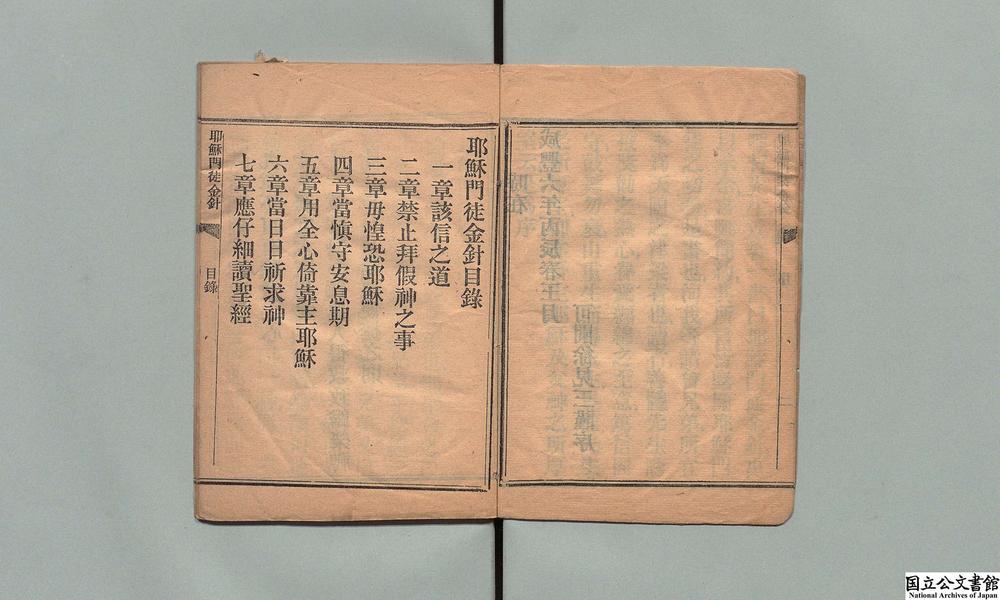 耶穌門徒金針目錄
一章該信之道
二章禁止拜假神之事
三章毋惶恐耶穌
四章當慎守安息期
五章用全心倚靠主耶穌
六章當日日祈求神
七章應仔細讀聖經
耶穌門徒金針
目錄
国立公文書館
National Archives of Japan